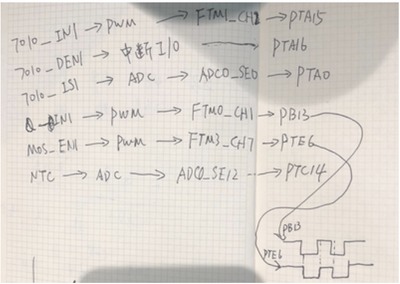 7010_IN1 → PWM → FTM1_CH2 → PTA15
7010_DEN1 → 中断I/O → PTA16
7010_IS1 → ADC → ADC0_SE0 → PTA0
IN1 → PWM → FTM0_CH1 → PB13
MOS_EN1 → PWM → FTM3_CH7 → PTE6
NTC → ADC → ADC0_SE12 → PTC14
PB13
PTE6